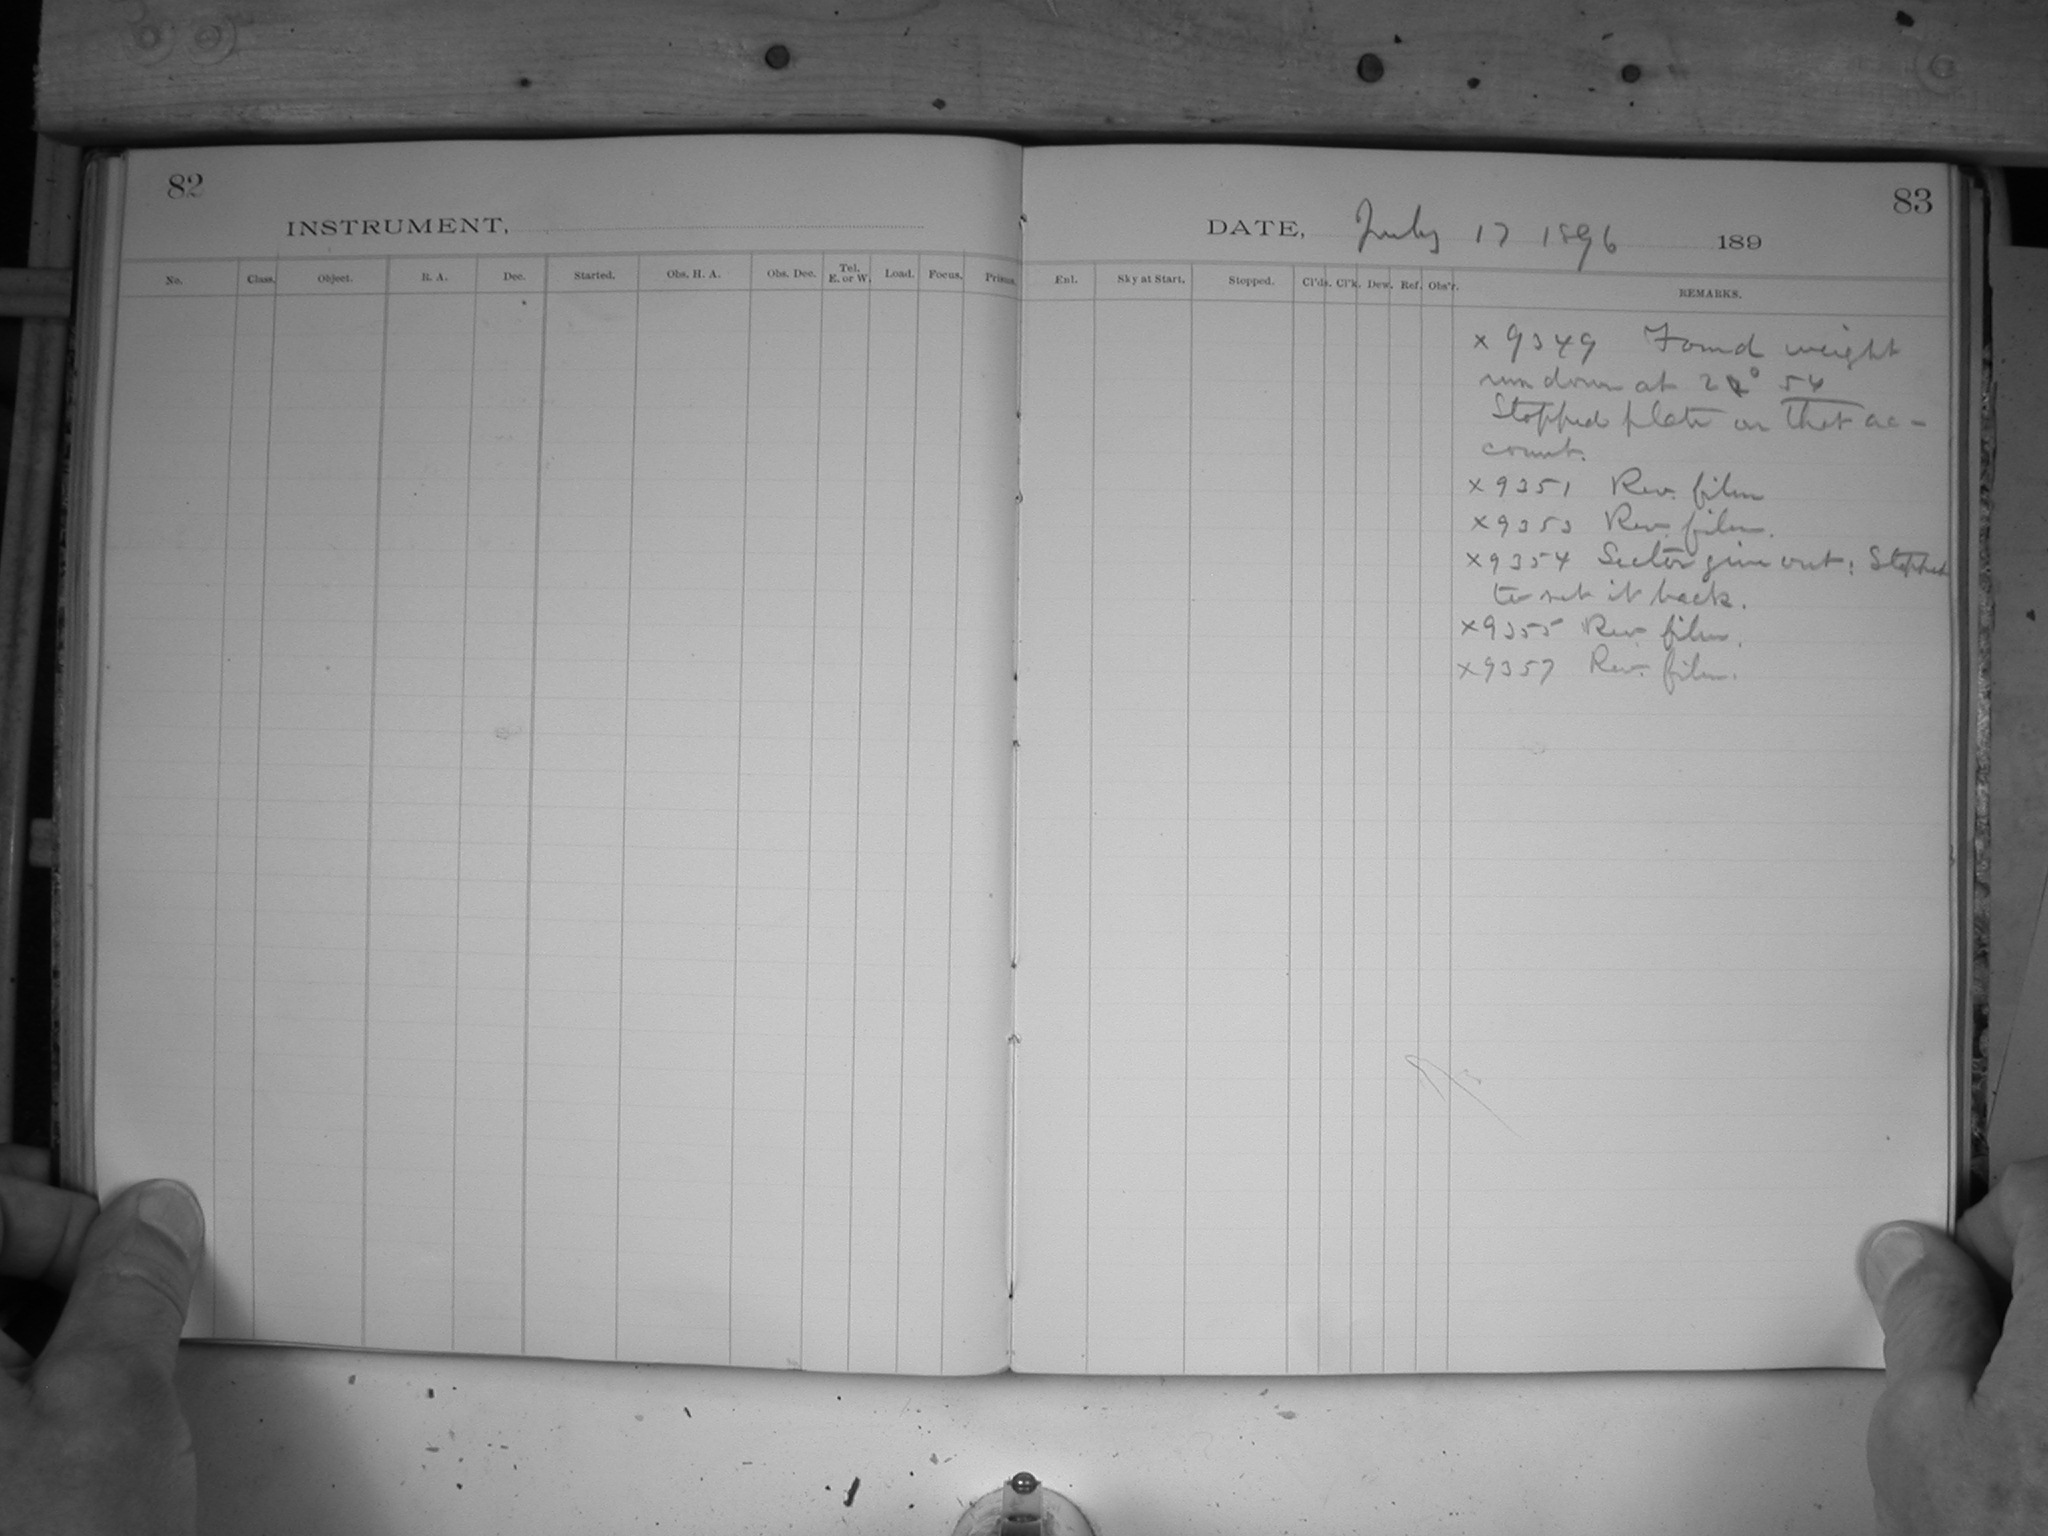 82
INSTRUMENT,
No. Class. Object. R. A. Dec. Started. Obs. H. A. Obs. Dec. Tel. E. or W. Load. Focus. Prisms.
83
DATE, July 17 1896 189
Enl. Sky at Start. Stopped. Cl'ds. Cl'k. Dew. Ref. Obs'r. REMARKS.
x 9349 Found weight
run down at 54
Stopped plate on that ac-
count.
x 9351 Rev. film
x 9353 Rev. film.
x 9354 Sector give out; Stopped
to set it back.
x 9355 Rev. film.
x 9357 Rev. film.